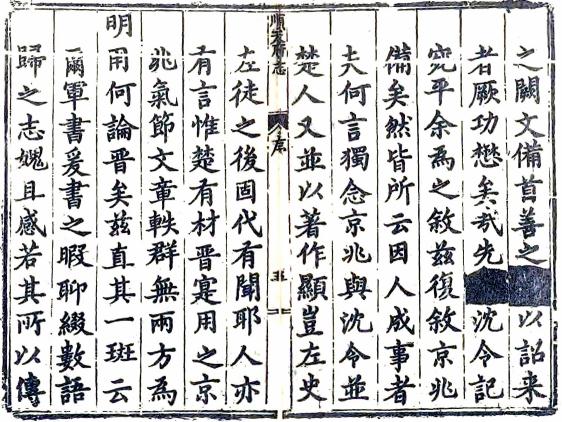 之闕文備首善之以詔来
者厥功懋矣哉先沈令記
宛平余為之敘茲復敘京兆
備矣然皆所云因人成事者
夫何言獨念京兆與沈令並
楚人又並以著作顯豈左史
順天府志
序
五
左徒之後固代有聞耶人亦
有言惟楚有材晉寔用之京
兆氣節文章軼群無兩方為
明用何論晉矣茲直其一斑云
爾軍書爰書之暇聊綴數語
歸之志媿且感若其所以傳